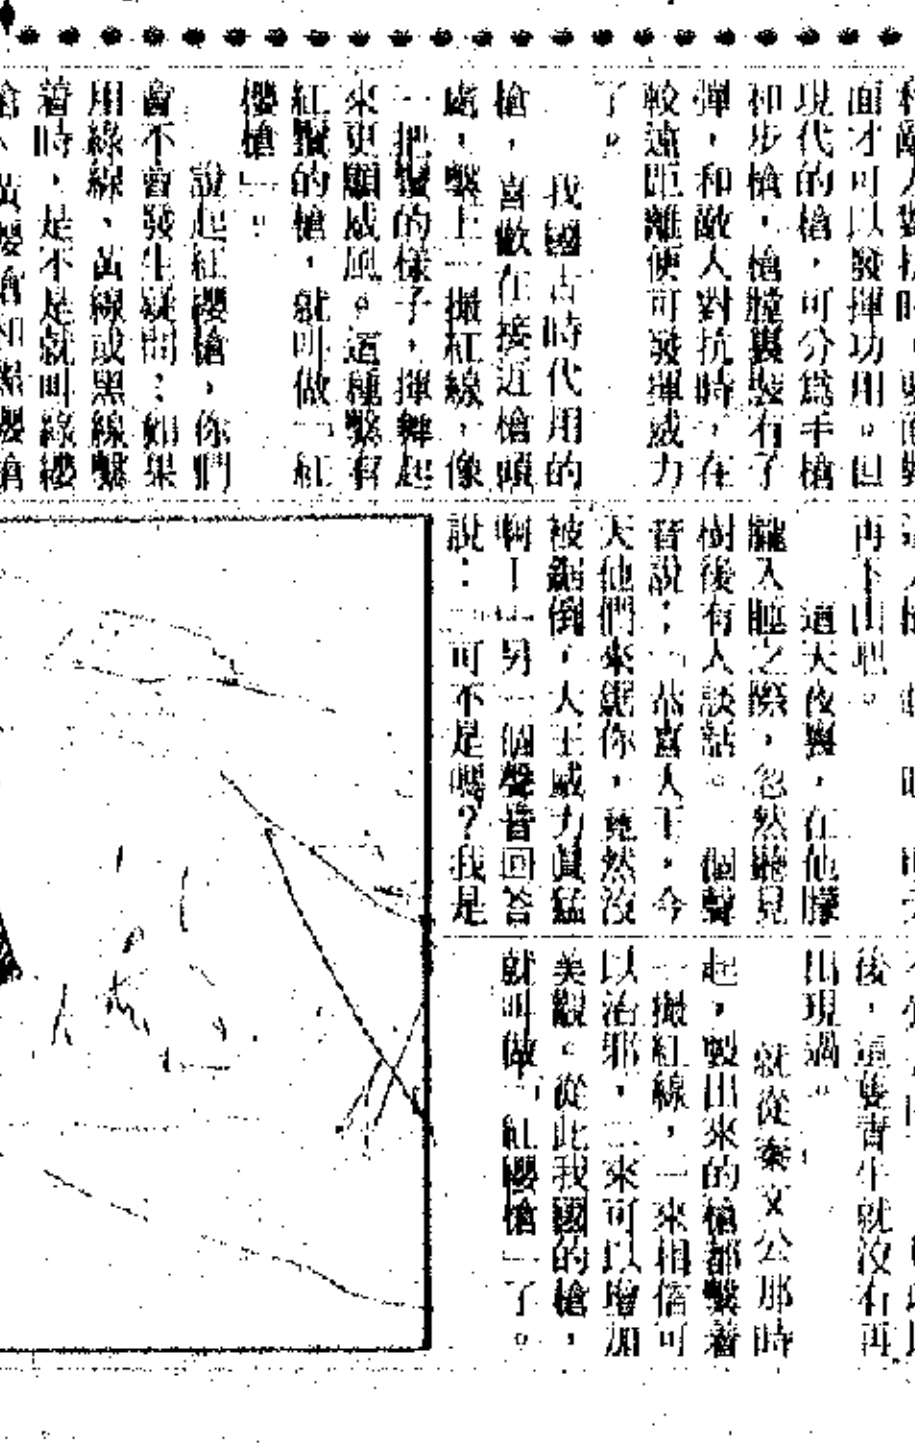 面才可以發揮功用。但
現代的槍，可分爲手槍
和步槍，槍膛裏裝有了
彈，和敵人對抗時，在
較遠距離便可發揮威力
了。
我國古時代用的
槍，喜歡在接近槍頭
處，繫上一撮紅線，像
一把鬚的樣子，揮舞起
來更顯威風。這種繫有
紅鬚的槍，就叫做「紅
櫻槍」。
說起紅纓槍，你們
會不會發生疑問：如果
用綠線、黃線或黑線繫
着時，是不是就叫綠纓
槍、黃纓槍和黑纓槍
再下山吧。
這天夜裏，在他朦
朧入睡之際，忽然聽見
樹後有人談話。一個聲
音說：「恭喜大王，今
天他們來鋸你，竟然沒
被鋸倒，大王威力眞猛
啊！」另一個聲音回答
說：「可不是嗎？我是
後，這隻青牛就沒有再
出現過。
就從秦文公那時
起，製出來的槍都繫着
一撮紅線，一來相信可
以治邪，二來可以增加
美觀。從此我國的槍，
就叫做「紅櫻槍」了。